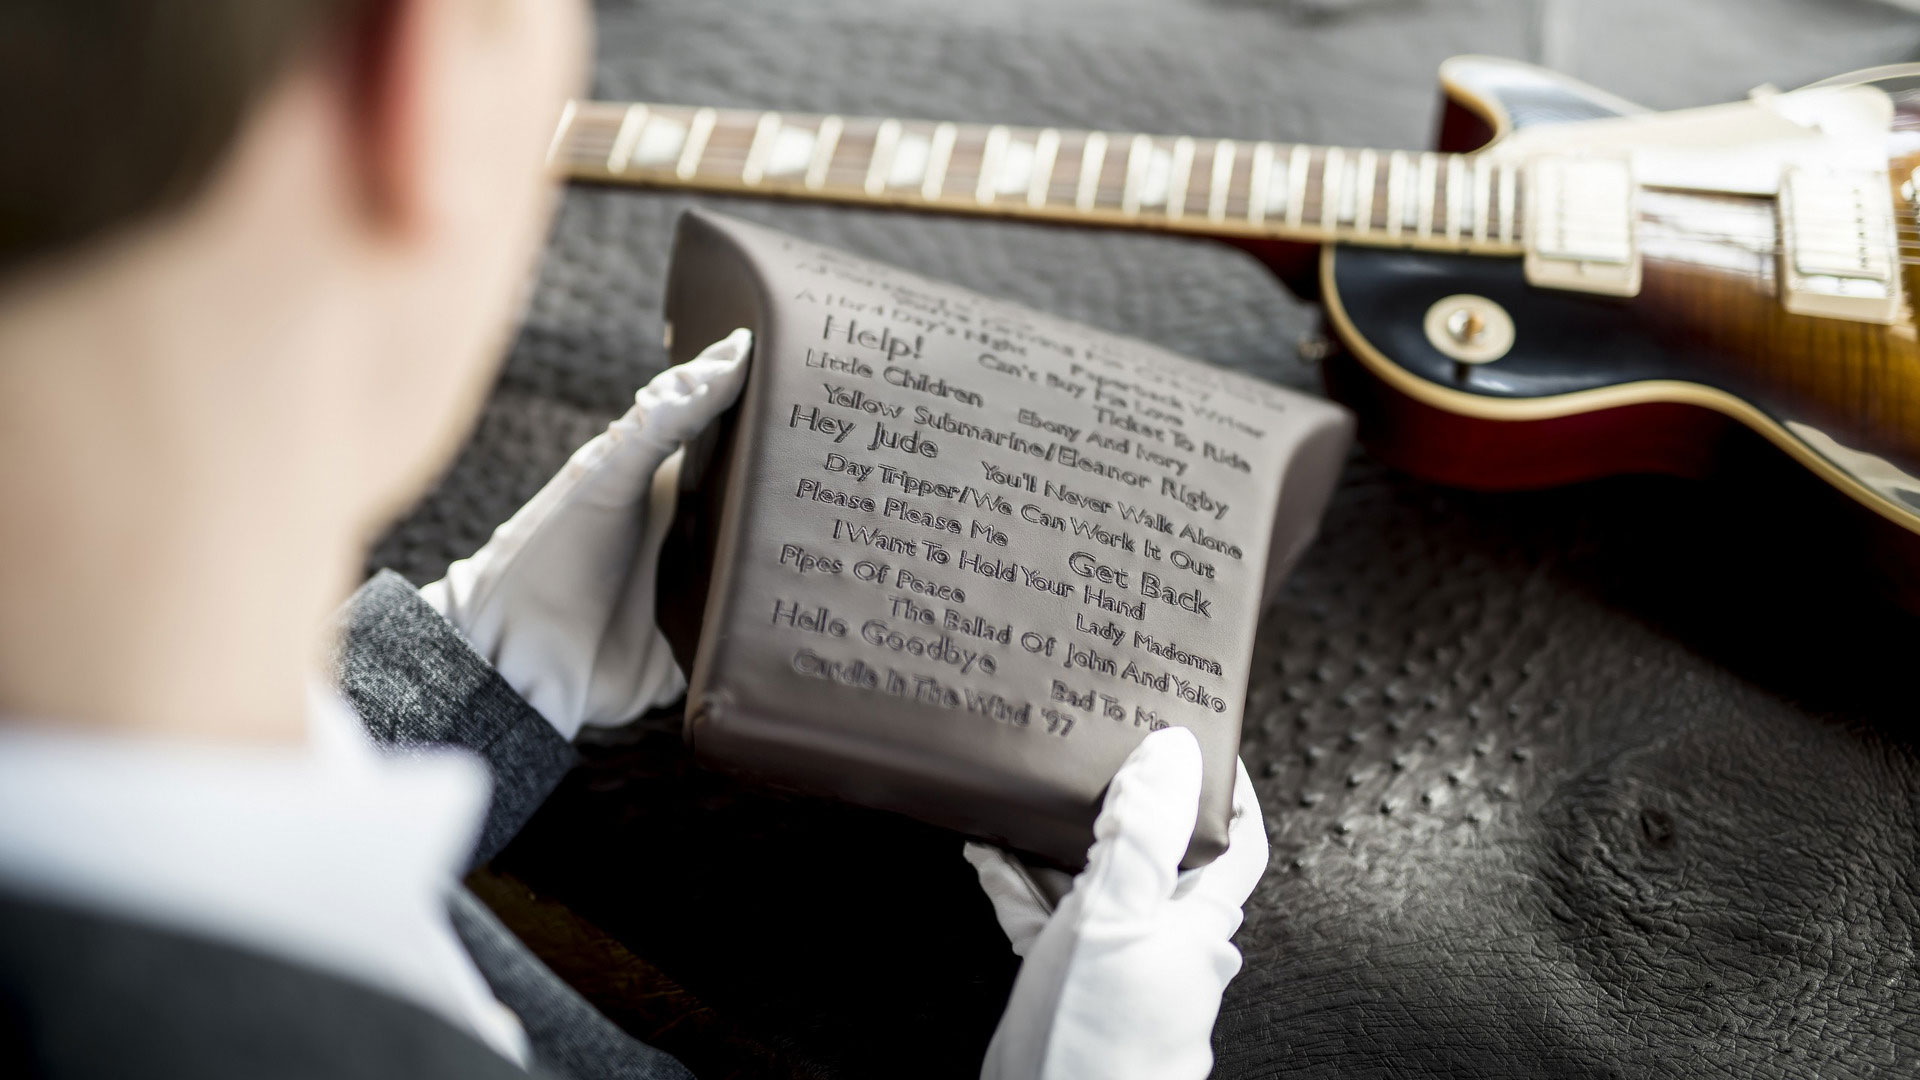 A Hard Day's Night
Help!
Paperback Writer
Can't Buy Me Love
Little Children
Ticket To Ride
Ebony And Ivory
Yellow Submarine/Eleanor Rigby
Hey Jude
You'll Never Walk Alone
Day Tripper/We Can Work It Out
Please Please Me
Get Back
I Want To Hold Your Hand
Pipes Of Peace
Lady Madonna
The Ballad Of John And Yoko
Hello Goodbye
Bad To Me
Candle In The Wind '97